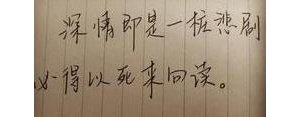 深情即是一桩悲剧
必得以死来句读。